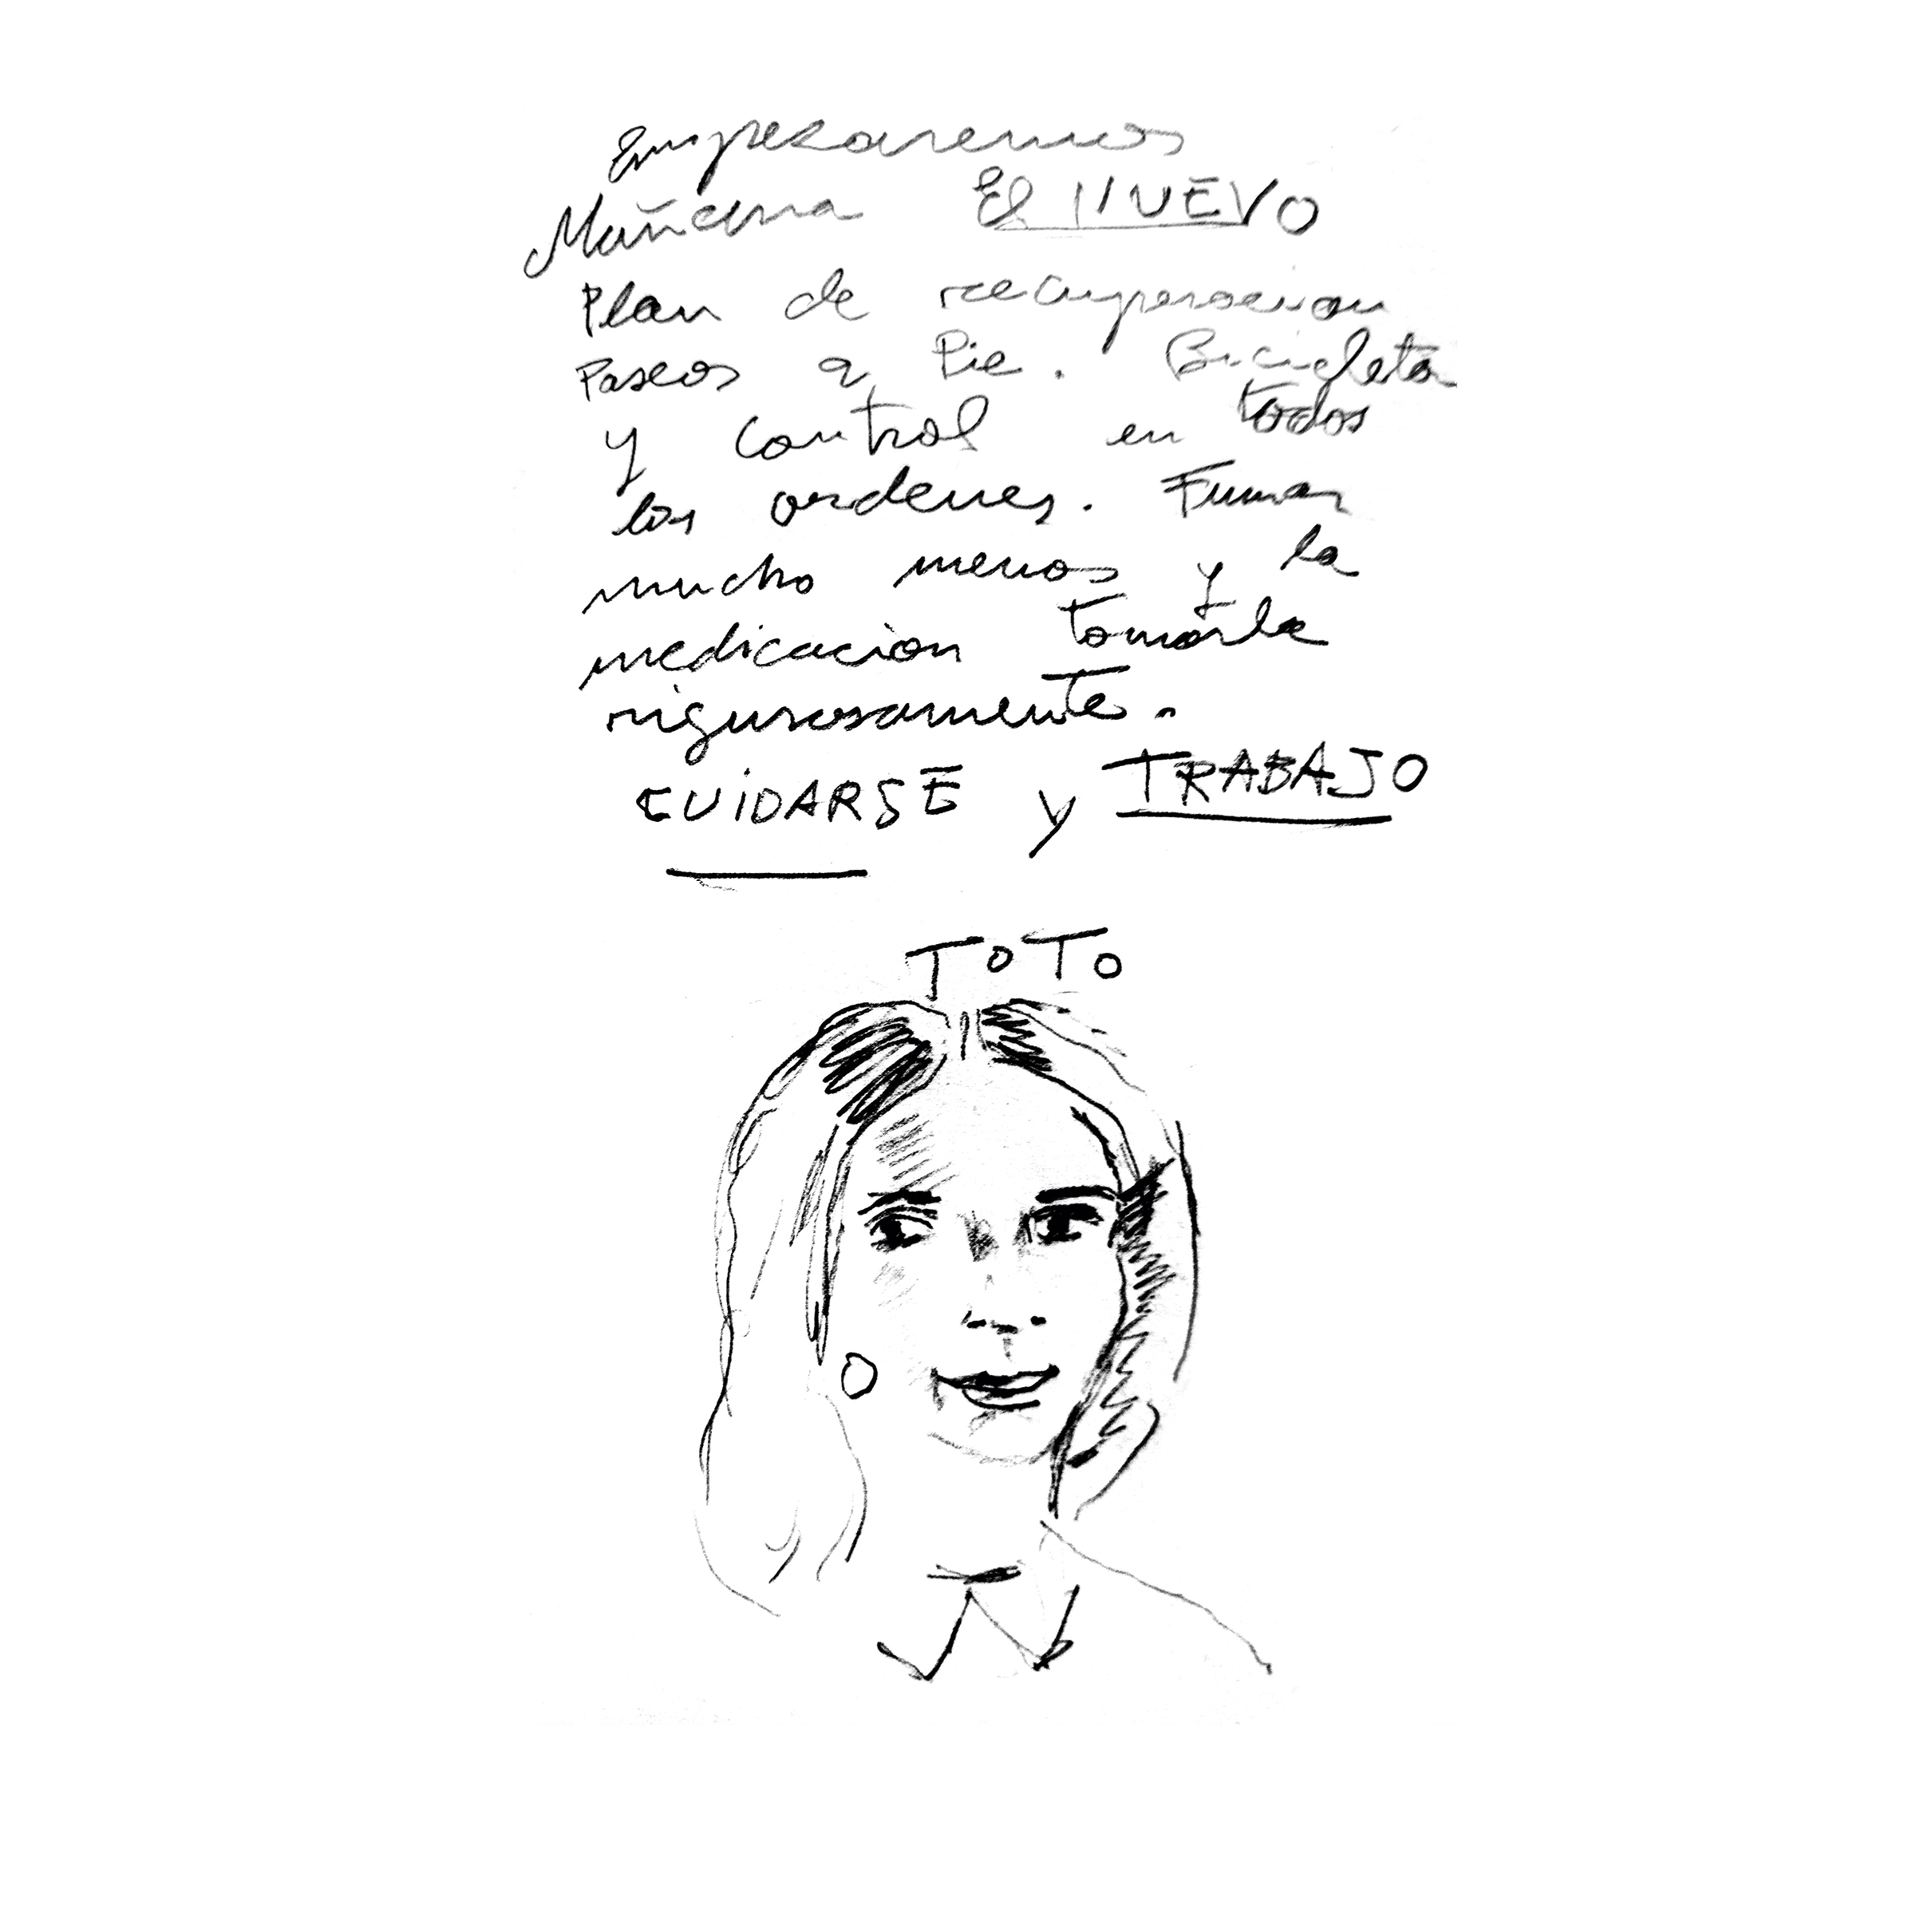 Empezaremos
Mañana El NUEVO
Plan de recuperacion
Paseos a Pie. Bicicleta
y control en todos
los ordenes. Fumar
mucho menos y la
medicación tomarla
rigurosamente.
CUiDARSE y TRABAJO
TOTO